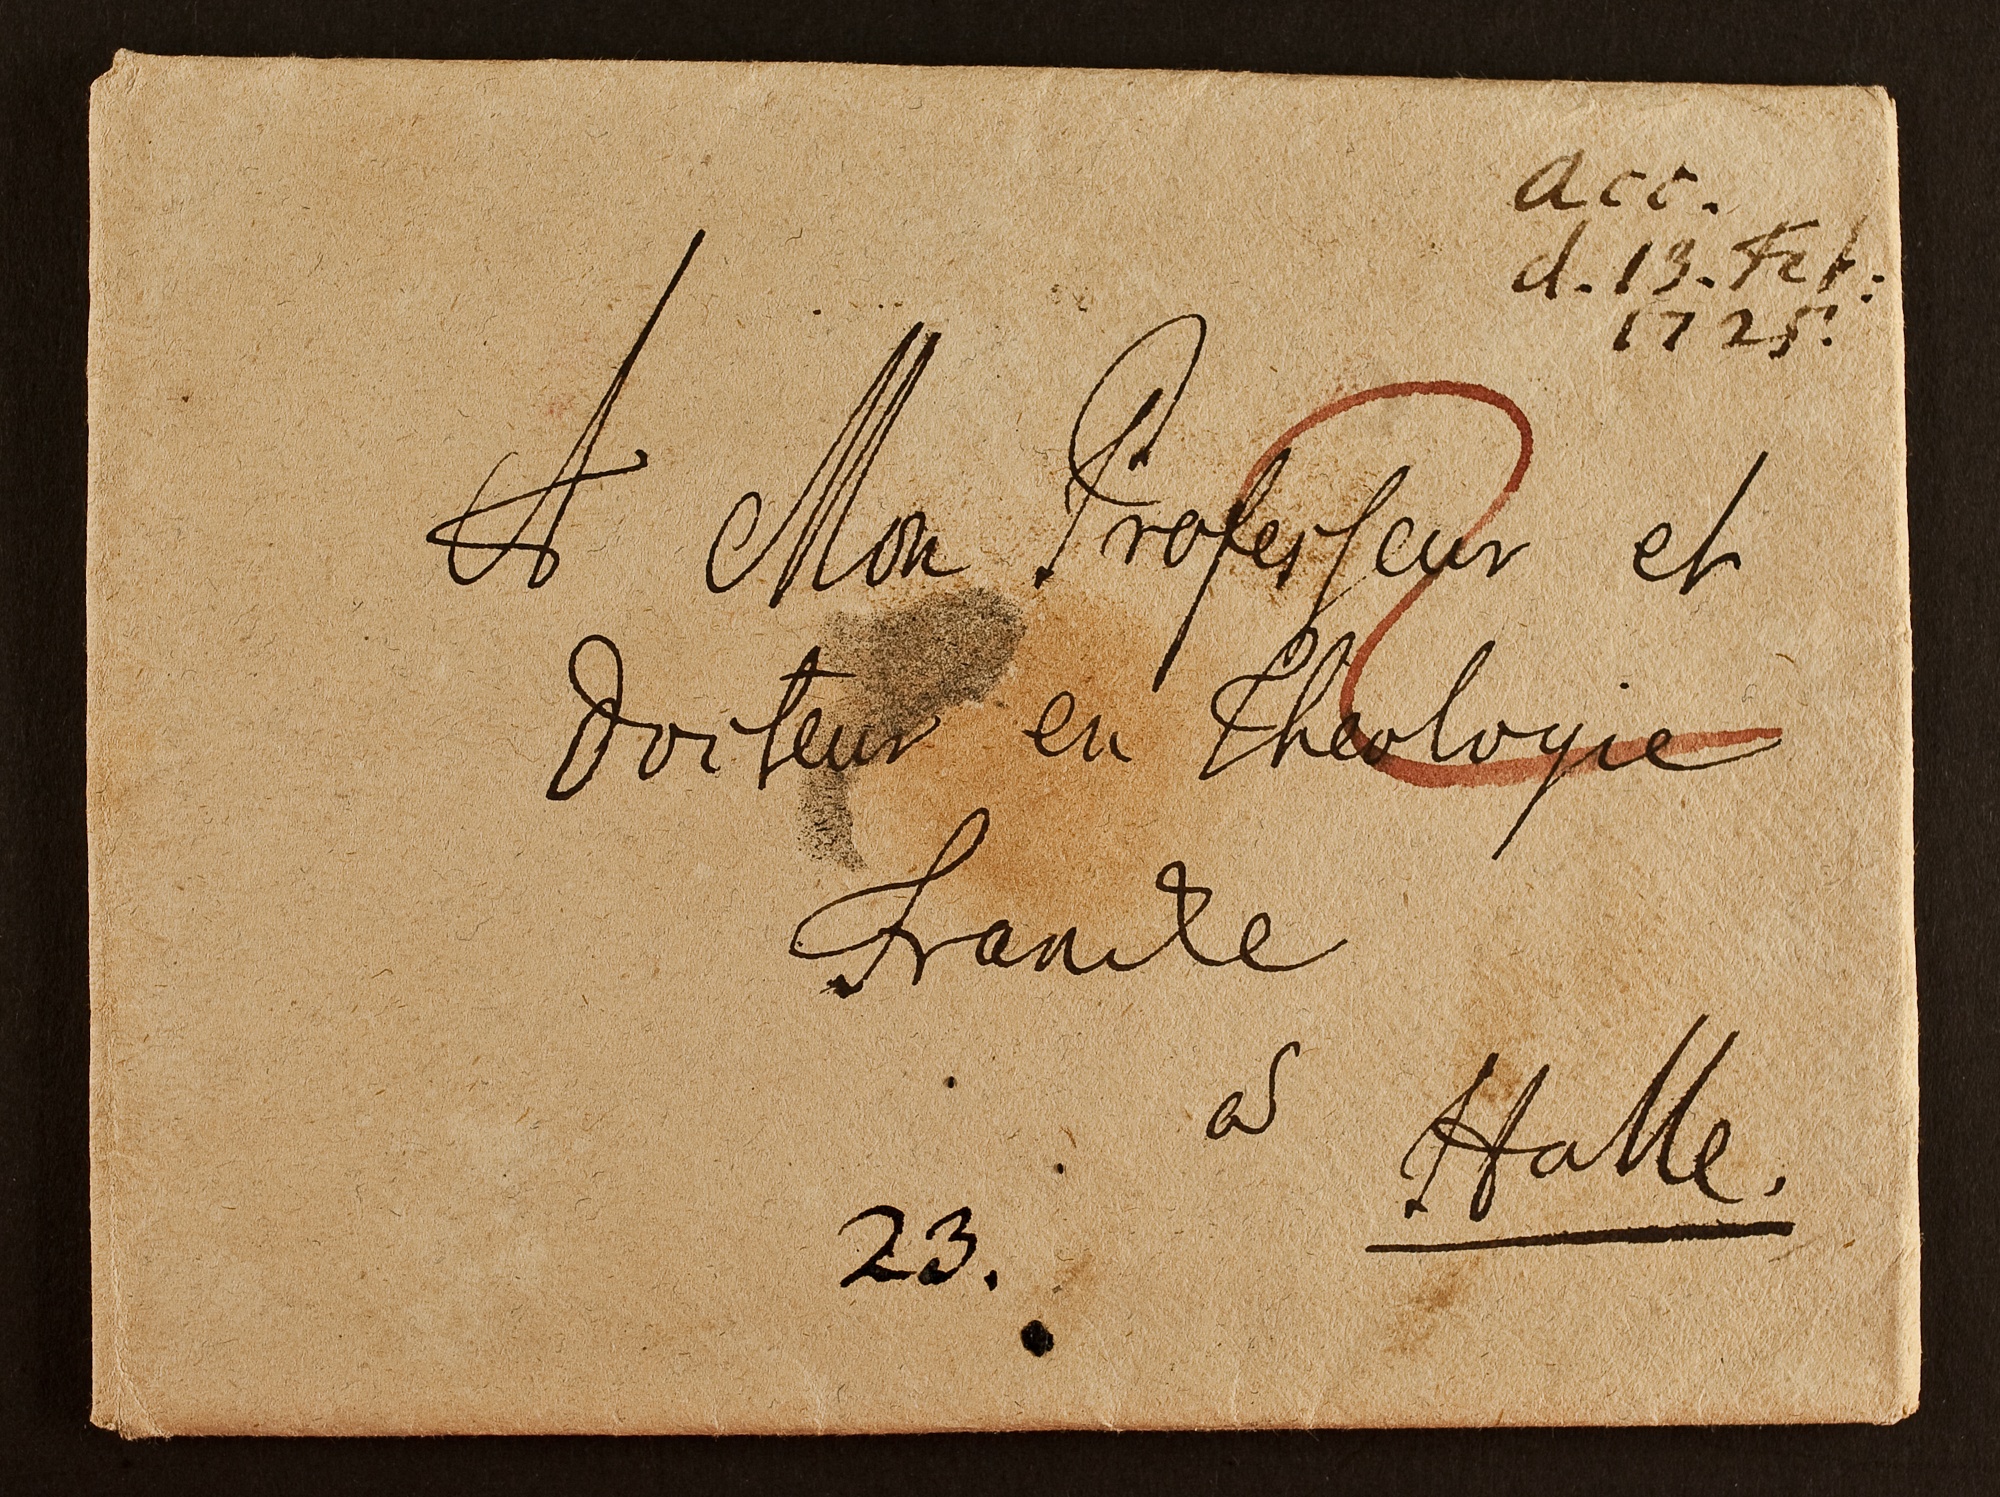 acc.
d. 13. Feb:
1725.
A Mon Professeur et
Docteur en Theologie
Francke
à Halle.
23.